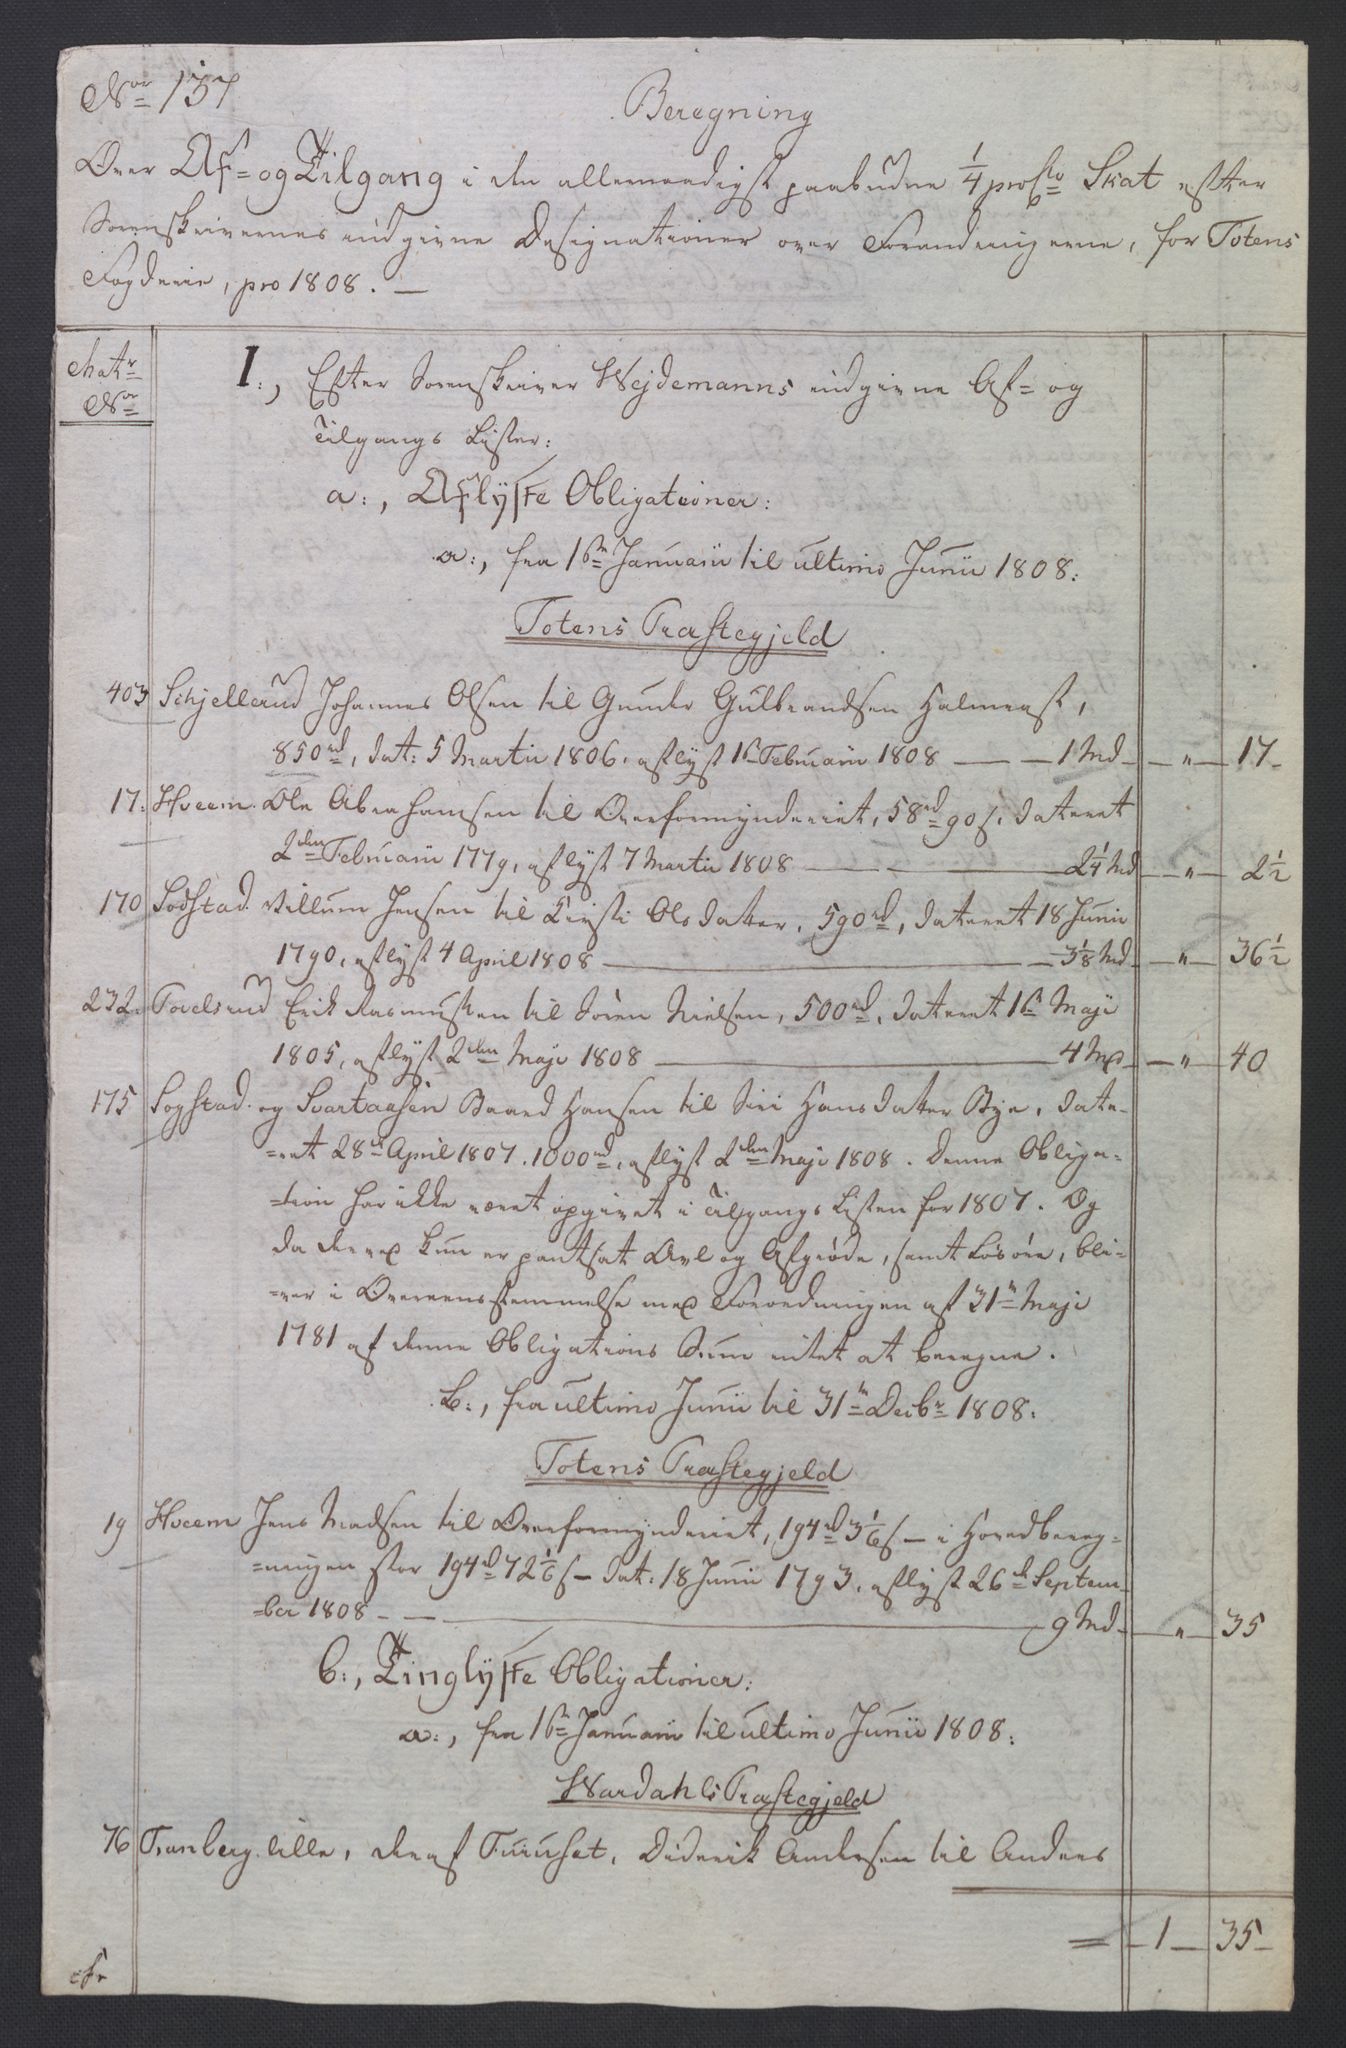 No 157
Beregning
Over Af- og Tilgang i den allernaadigst paabudne 1/4 proCto Skat efter
Sorenskrivernes indgivne Designationer over Forandringerne, for Totens
Fogderie, pro 1808. —
Matr No
I:, Efter Sorenskriver Wejdemanns indgivne Af- og
Tilgangs Lister:
a:, Aflyste Obligationer:
a:, fra 16n Januarii til ultimo Junii 1808:
Totens Præstegjeld
403 Schjellerud Johannes Olsen til Gunder Gulbrandsen Halmrast,
850rd, dat: 5 Martii 1806. aflyst 16 Februarii 1808 — 1 Md — " — 17-
17. Hveem. Ole Abrahamsen til Overformynderiet, 58rd 90 s. dateret
2den Februarii 1779, aflyst 7 Martii 1808 — 2 1/4 Md — " — 2 1/2
170 Sodstad. Villum Jensen til Kirsti Olsdatter, 590rd, dateret 18 Junii
1790, aflyst 4 April 1808 — 3 1/8 Md — " — 36 1/2
232. Povelsrud Erik Rasmussen til Sören Nielsen, 500rd, dateret 16 Maji
1805, aflyst 2den Maji 1808 — 4 Md — " — 40
175 Sogstad. og Svartaasen Baard Hansen til Siri Hansdatter Bye, date-
-ret 28de April 1807. 1000rd, aflyst 2den Maji 1808. Denne Obliga-
-tion har ikke været opgivet i Tilgangs Listen for 1807. Og
da derved kun er pantsat Avl og Afgröde, samt Lösöre, bli-
-ver i Overeensstemmelse med Forordningen af 31n Maji
1781 af denne Obligations Sum intet at beregne.
b:, fra ultimo Junii til 31n Decbr 1808:
Totens Præstegjeld
19 Hveem Jens Madsen til Overformynderiet, 194rd 3 1/6 s — i Hovedbereg-
-ningen stor 194rd 72 1/6 s — dat: 18 Junii 1793, aflyst 26de Septem-
-ber 1808 — 9 Md — " — 35
b:, Tinglyste Obligationer:
a:, fra 16n Januarii til ultimo Junii 1808:
Wardahls Præstegjeld
76 Tranberg lille, deraf Furuset, Diderik Andersen til Anders
= — 1 — 35 —